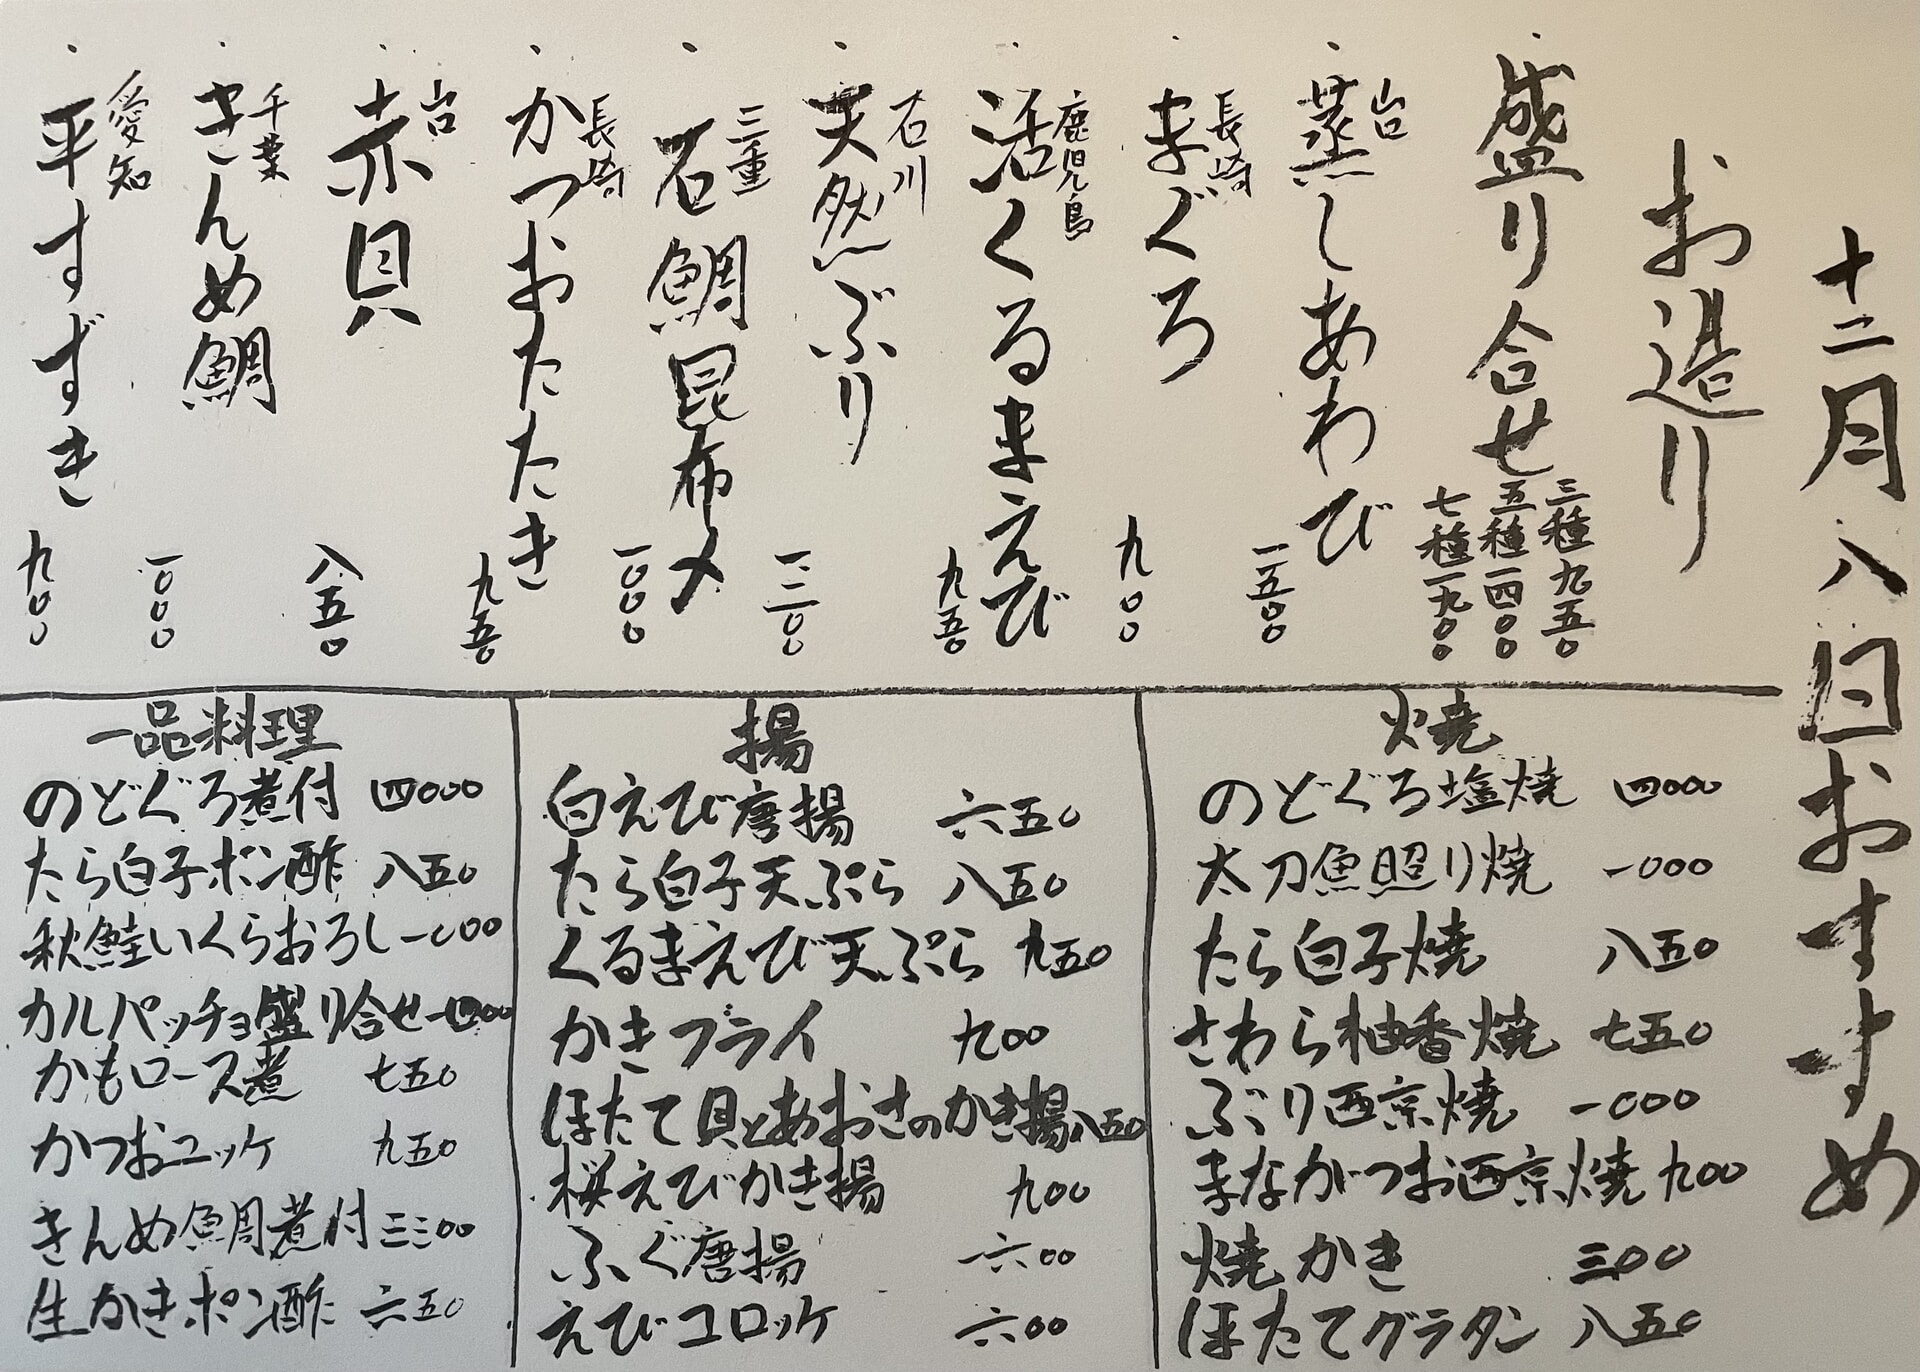 十二月八日おすすめ
お造り
盛り合せ 三種九五〇
五種一四〇〇
七種一九〇〇
蒸しあわび 一五〇〇
長崎
まぐろ 九〇〇
鹿児島
活くるまえび 九五〇
石川
天然ぶり 一二〇〇
三重
石鯛昆布〆 一〇〇〇
長崎
かつおたたき 九五〇
赤貝 八五〇
千葉
きんめ鯛 一〇〇〇
愛知
平すずき 九〇〇
焼
のどぐろ塩焼 四〇〇〇
太刀魚照り焼 一〇〇〇
たら白子焼 八五〇
さわら柚香焼 七五〇
ぶり西京焼 一〇〇〇
まながつお西京焼 九〇〇
焼かき 三〇〇
ほたてグラタン 八五〇
揚
白えび唐揚 六五〇
たら白子天ぷら 八五〇
くるまえび天ぷら 九五〇
かきフライ 九〇〇
ほたて貝とあおさのかき揚 八五〇
桜えびかき揚 九〇〇
ふぐ唐揚 一六〇〇
えびコロッケ 六〇〇
一品料理
のどぐろ煮付 四〇〇〇
たら白子ポン酢 八五〇
秋鮭いくらおろし 一〇〇〇
カルパッチョ盛り合せ 一四〇〇
かもロース煮 七五〇
かつおユッケ 九五〇
きんめ鯛煮付 三三〇〇
生かきポン酢 六五〇